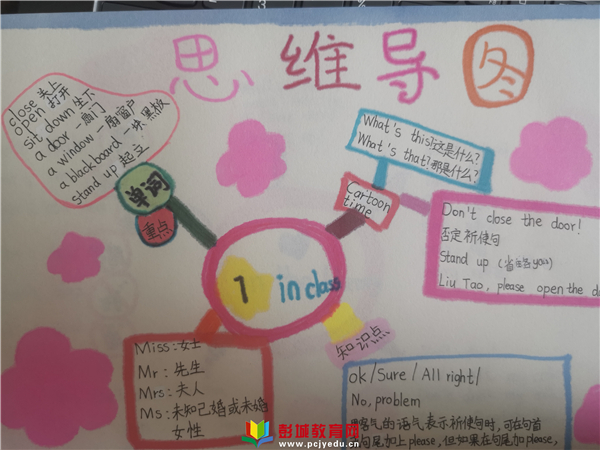 思维导图
close 关上
open 打开
sit down 坐下
a door 一扇门
a window 一扇窗户
a blackboard 一块黑板
stand up 起立
单词
重点
What's this?这是什么?
What's that?那是什么?
Cartoon
time
Don't close the door!
否定祈使句
Stand up (省略you)
Liu Tao, please open the do
1 in class
知识点
Miss:女士
Mr:先生
Mrs:夫人
Ms:未知已婚或未婚
女性
ok/Sure/All right/
No, problem
客气的语气表示祈使句时,可在句首
句尾加上please,但如果在句尾加please,
彭城教育网
www.pcjyedu.cn